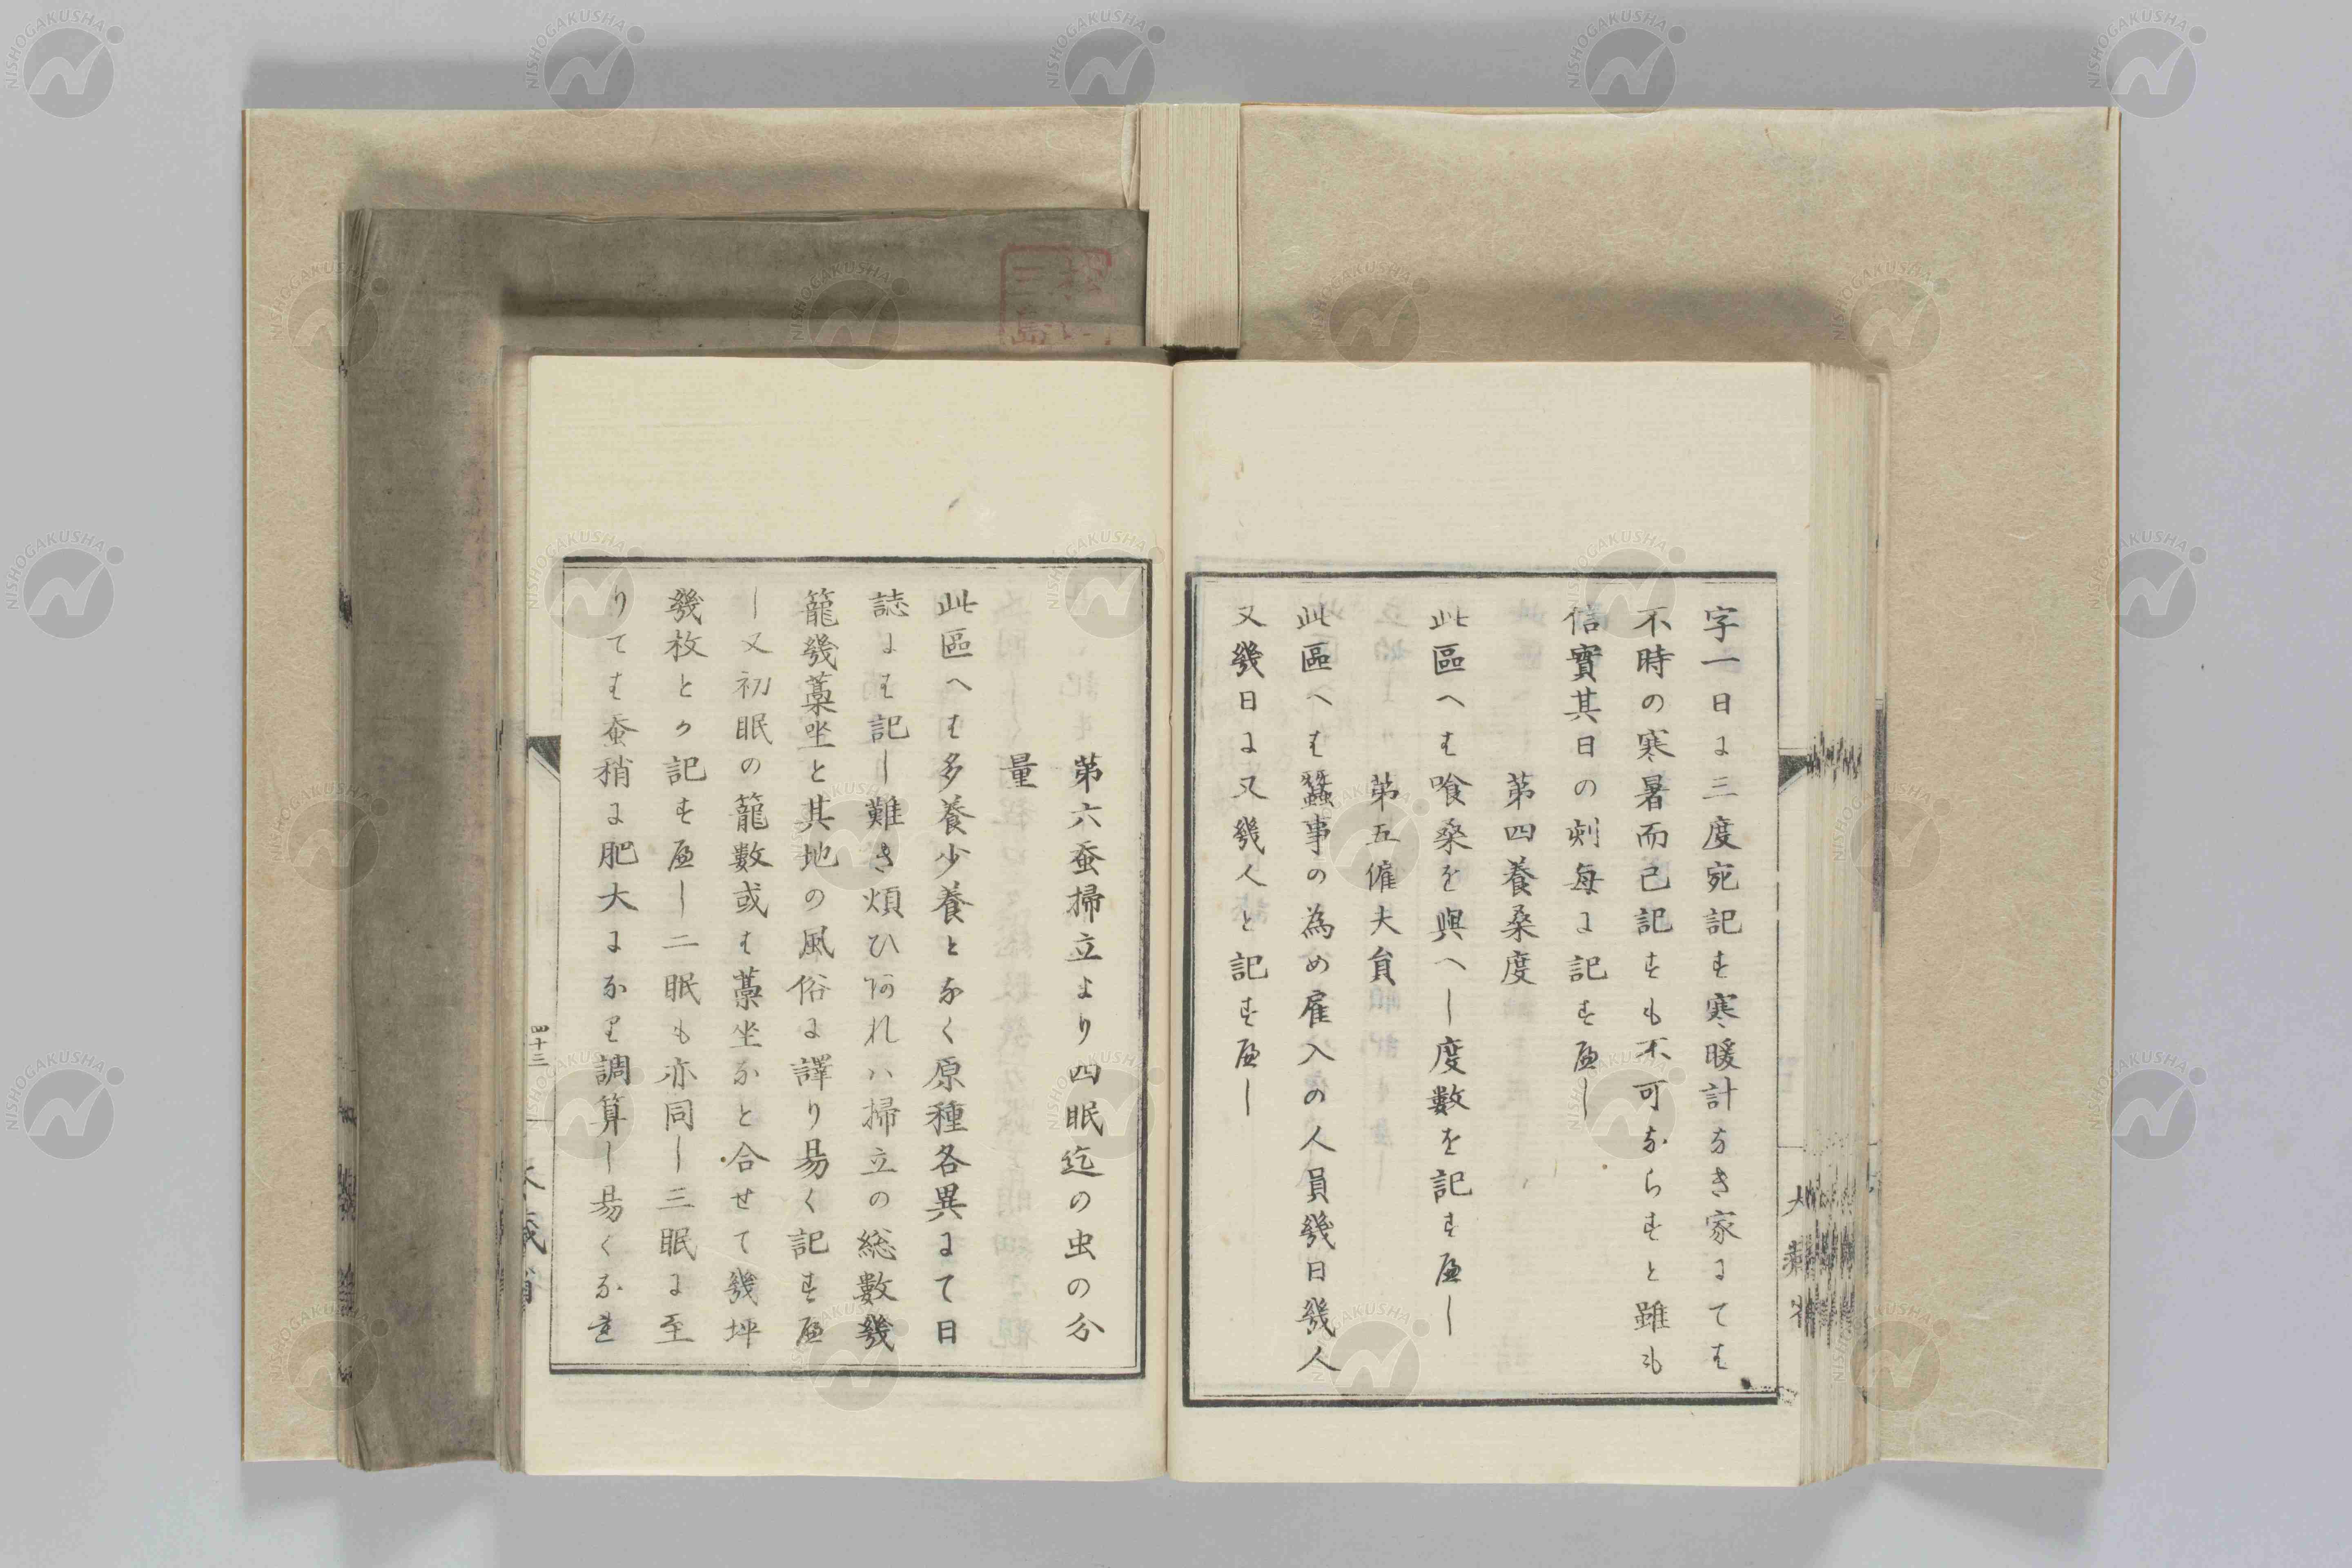 字一日に三度宛記す寒暖計なき家にては
不時の寒暑而己記すも不可ならすと雖も
信實其日の刻毎に記すへし
第四養桑度
此區へは喰桑を與へし度数を記すへし
第五傭夫負
此區へは蠶事の為め雇入の人員幾日幾人
又幾日に又幾人と記すへし
第六蚕掃立より四眠迄の虫の分
量
此區へは多養少養となく原種各異にて日
誌には記し難き煩ひ阿れハ掃立の総數幾
籠幾藁坐と其地の風俗に譯り易く記すへ
し又初眠の籠數或は藁坐なと合せて幾坪
幾枚とか記すへし二眠も亦同し三眠に至
りては蚕稍に肥大になり調算し易くなれ
四十三
大蔵省
NISHOGAKUSHA